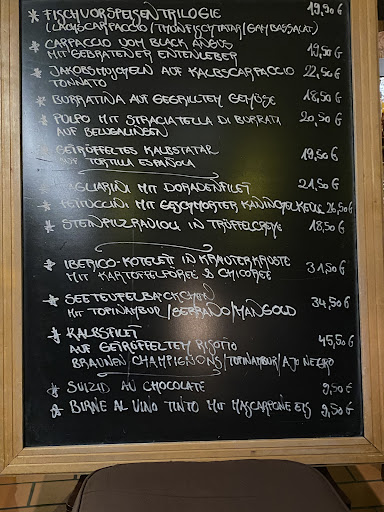 * FISCHVORSPEISENTRILOGIE 19,90 €
(LACHSCARPACCIO/THUNFISCHTATAR/GAMBASSALAT)
* CARPACCIO VOM BLACK ANGUS
MIT GEBRATENER ENTENLEBER 19,50 €
* JAKOBSMUSCHELN AUF KALBSCARPACCIO 22,50 €
TONNATO
* BURRATINA AUF GEGRILLTEM GEMÜSE 18,50 €
* PULPO MIT STRACIATELLA DI BURRATA 20,50 €
AUF BELUGALINSEN
* GETRÜFFELTES KALBSTATAR
AUF TORTILLA ESPAÑOLA 19,50 €
* TAGLIARINI MIT DORADENFILET 21,50 €
* FETTUCCINI MIT GESCHMORTER KANINCHENKEULE 26,50 €
* STEINPILZRAVIOLI IN TRÜFFELCREME 18,50 €
* IBERICO-KOTELETT IN KRÄUTERKRUSTE
MIT KARTOFFELPÜREE & CHICOREE 31,50 €
* SEETEUFELBÄCKCHEN
MIT TOPINAMBUR/SERRANO/MANGOLD 34,50 €
* KALBSFILET
AUF GETRÜFFELTEM RISOTTO 45,50 €
BRAUNEN CHAMPIGNONS/TOPINAMBUR/AJO NEGRO
* SUIZID AU CHOCOLATE 9,50 €
* BIRNE AL VINO TINTO MIT MASCARPONE EIS 9,50 €